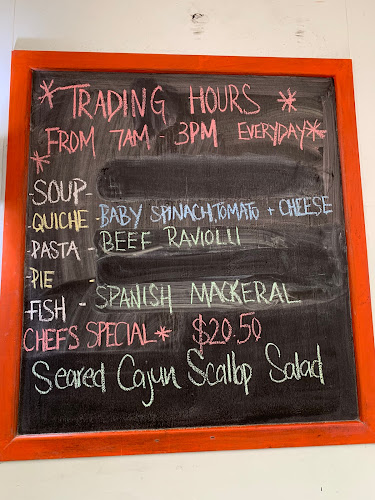 * TRADING HOURS *
FROM 7AM - 3PM EVERYDAY*
*
-SOUP-
-QUICHE -BABY SPINACH,TOMATO + CHEESE
-PASTA - BEEF RAVIOLLI
-PIE -
FISH - SPANISH MACKERAL
CHEFS SPECIAL* $20.50
Seared Cajun Scallop Salad